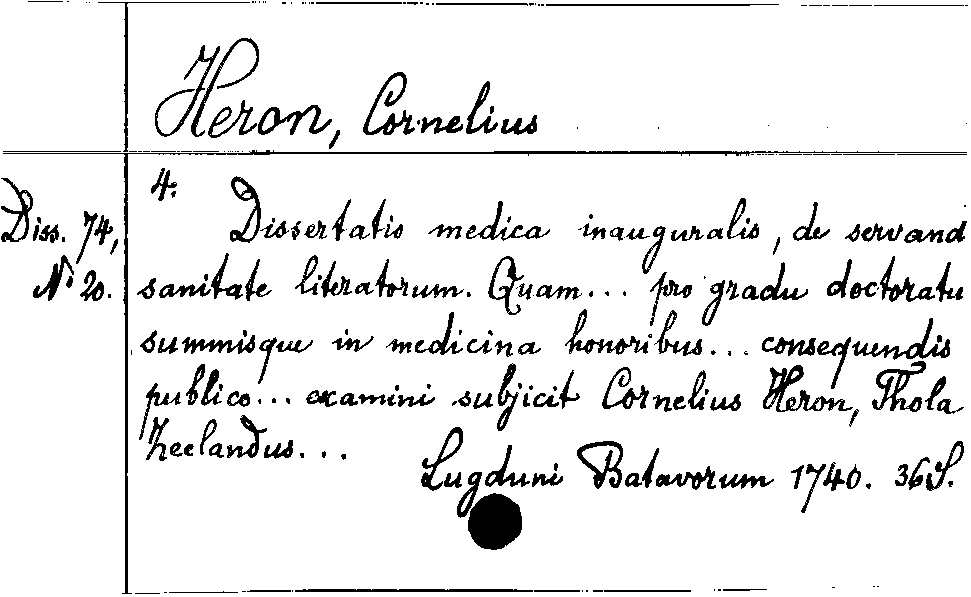 Heron, Cornelius
4.
Diss. 74, Dissertatio medica inauguralis, de servand
No 20. sanitate literatorum. Quam... pro gradu doctoratu
summisque in medicina honoribus... consequendis
publico... examini subjicit Cornelius Heron, Thola
Zeelandus...
Lugduni Batavorum 1740. 36S.